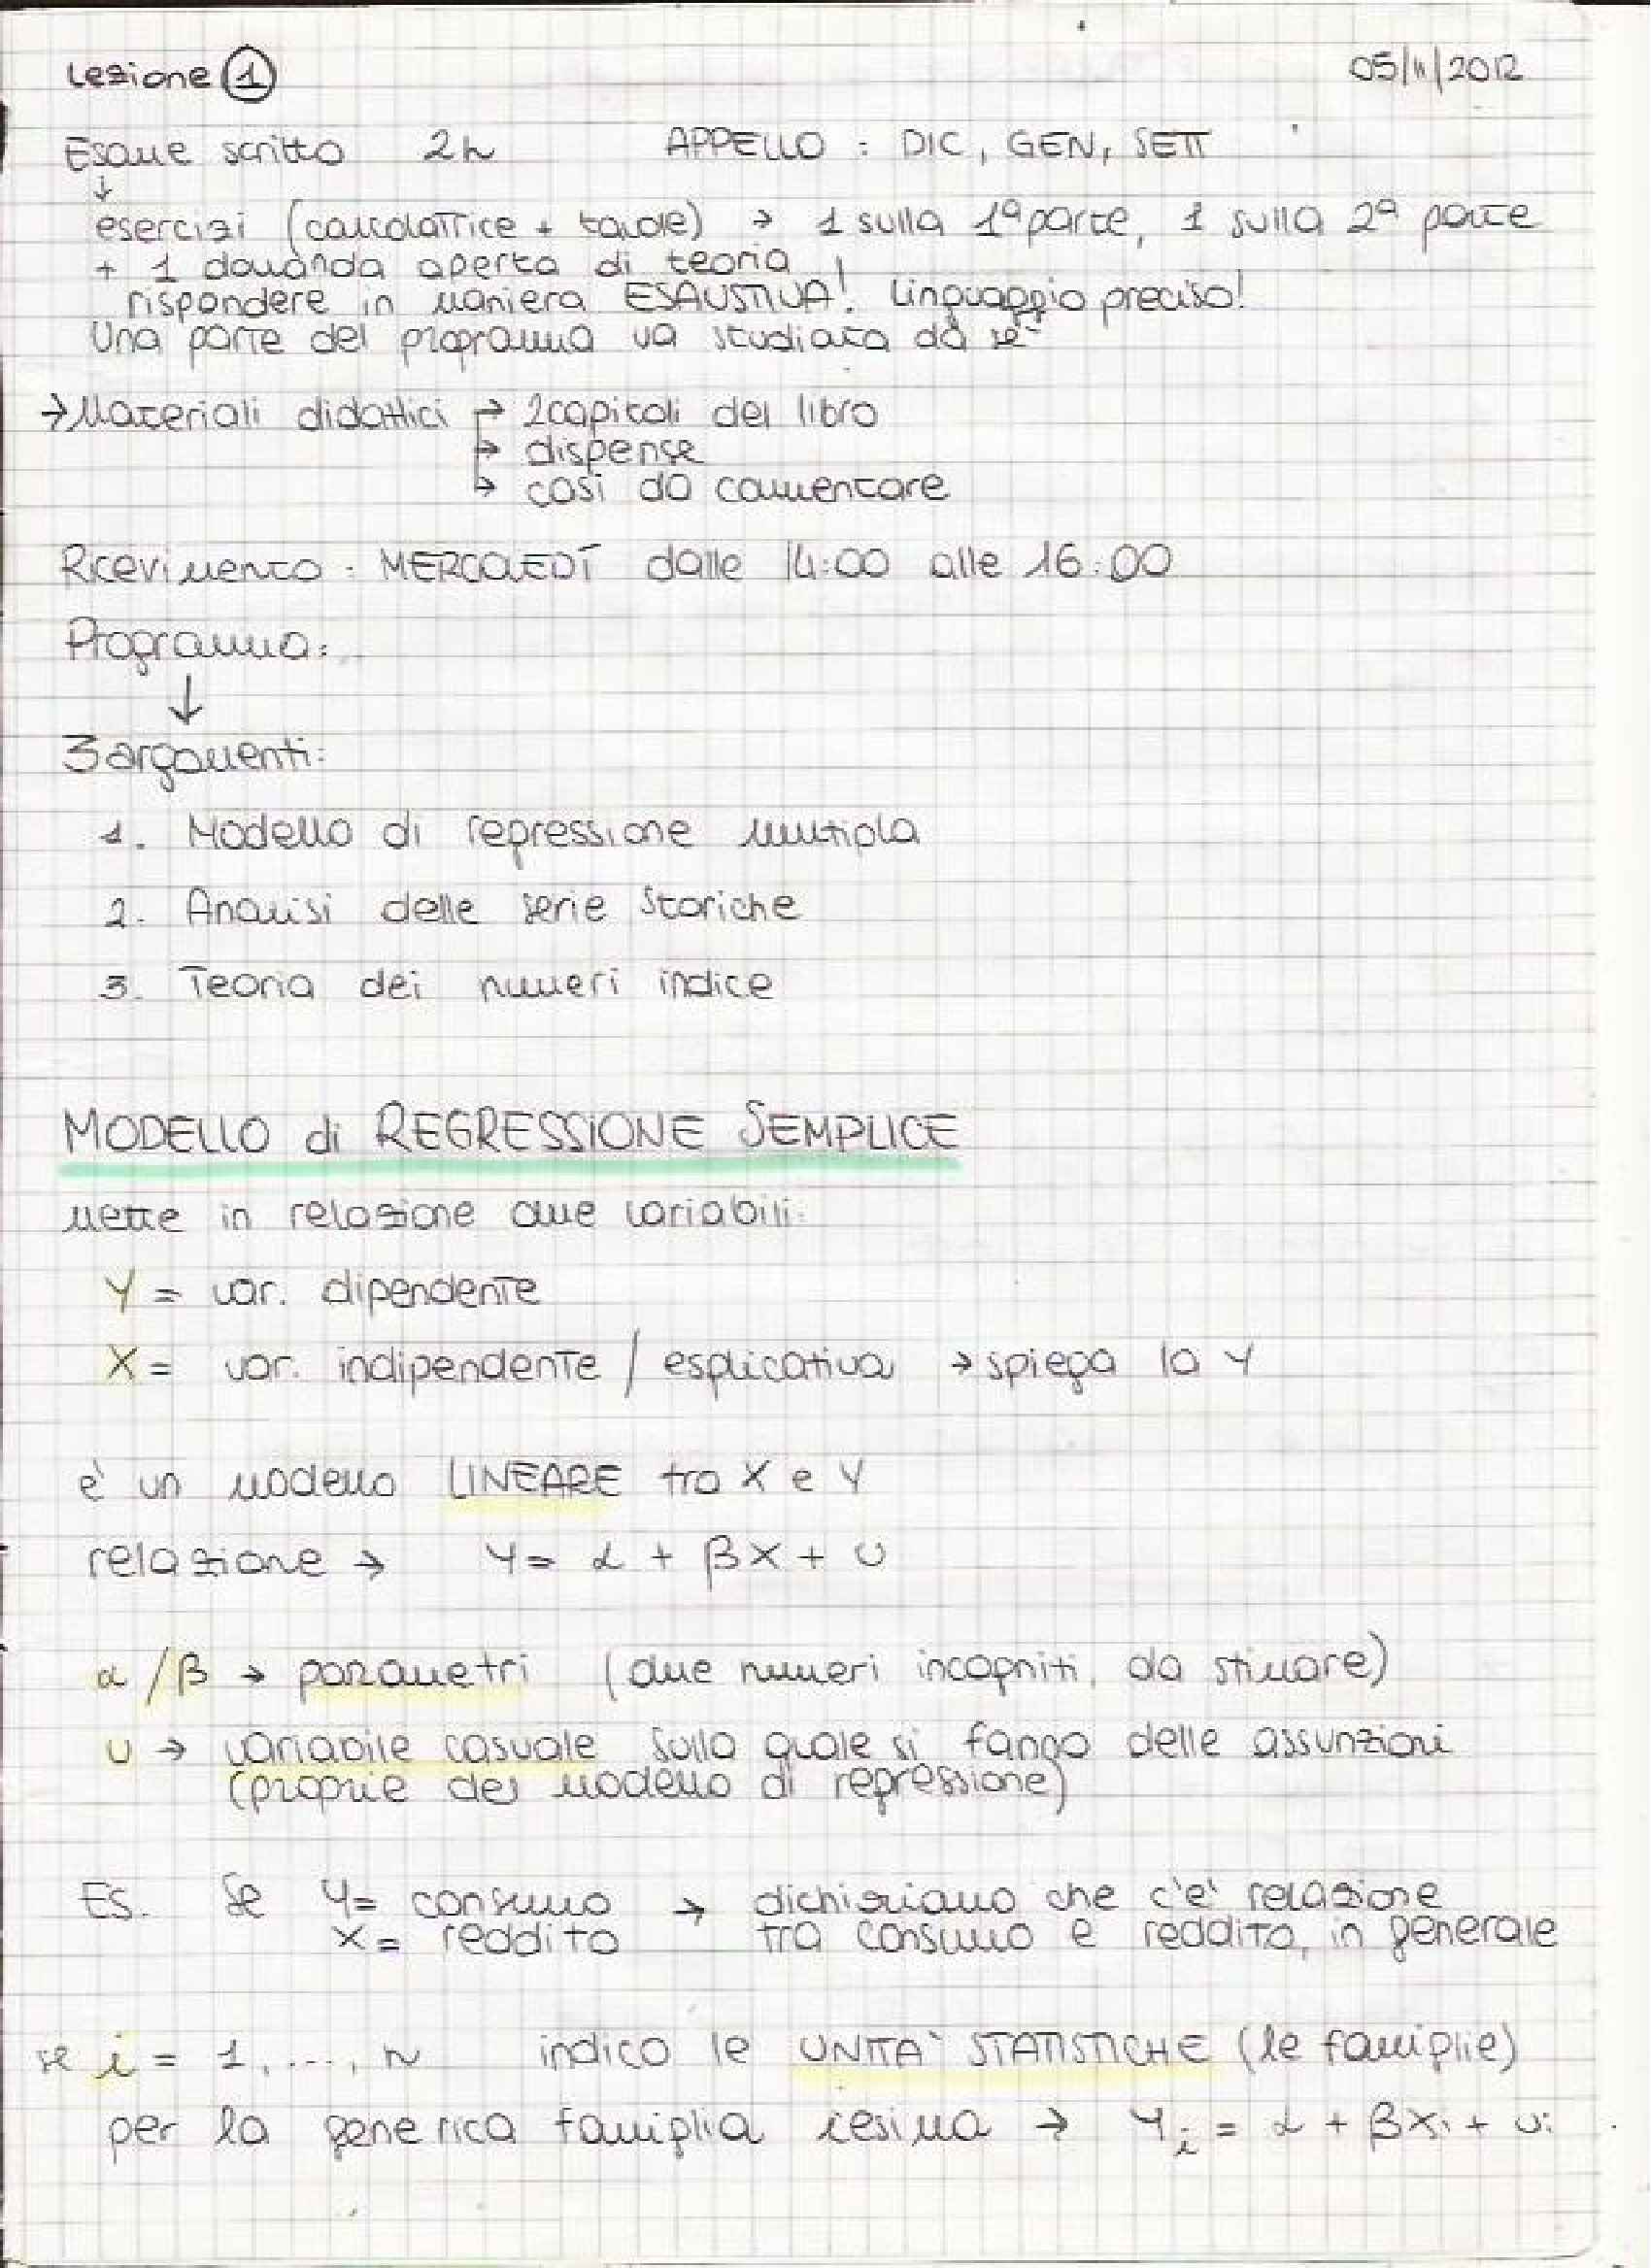 Lezione 1 05/11/2012
Esame scritto 2h APPELLO : DIC, GEN, SETT
↓
esercizi (calcolatrice + tavole) → 1 sulla 1ª parte, 1 sulla 2ª parte
+ 1 domanda aperta di teoria
rispondere in maniera ESAUSTIVA! Linguaggio preciso!
Una parte del programma va studiata da sé
→ Materiali didattici → 2 capitoli del libro
→ dispense
→ casi da commentare
Ricevimento : MERCOLEDÌ dalle 14:00 alle 16:00
Programma:
↓
3 argomenti:
1. Modello di regressione multipla
2. Analisi delle serie storiche
3. Teoria dei numeri indice
MODELLO di REGRESSIONE SEMPLICE
mette in relazione due variabili:
Y = var. dipendente
X = var. indipendente / esplicativa → spiega la Y
è un modello LINEARE tra X e Y
relazione → Y = α + βX + U
α / β → parametri (due numeri incogniti, da stimare)
U → variabile casuale sulla quale si fanno delle assunzioni
(proprie del modello di regressione)
Es. Se Y = consumo → dichiariamo che c'è relazione
X = reddito tra consumo e reddito, in generale
se i = 1, ..., N indico le UNITA' STATISTICHE (le famiglie)
per la generica famiglia iesima → Yi = α + βXi + Ui